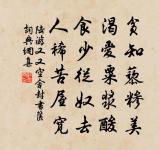 貧知藜糝美
渴愛粟漿酸
食少從奴去
人稀苦屋寬
陸游又又空封書
詞典網集